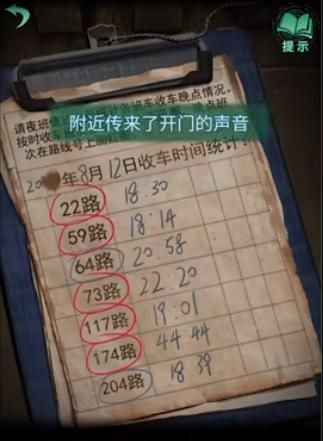 提示
请夜班值 统计各班车收车晚点情况。
附近传来了开门的声音
按时收车 晚点班
次在路线号上画
20 年8月12日收车时间统计：
22路 18:30
59路 18:14
64路 20:58
73路 22:20
117路 19:01
174路 44:44
204路 18:39